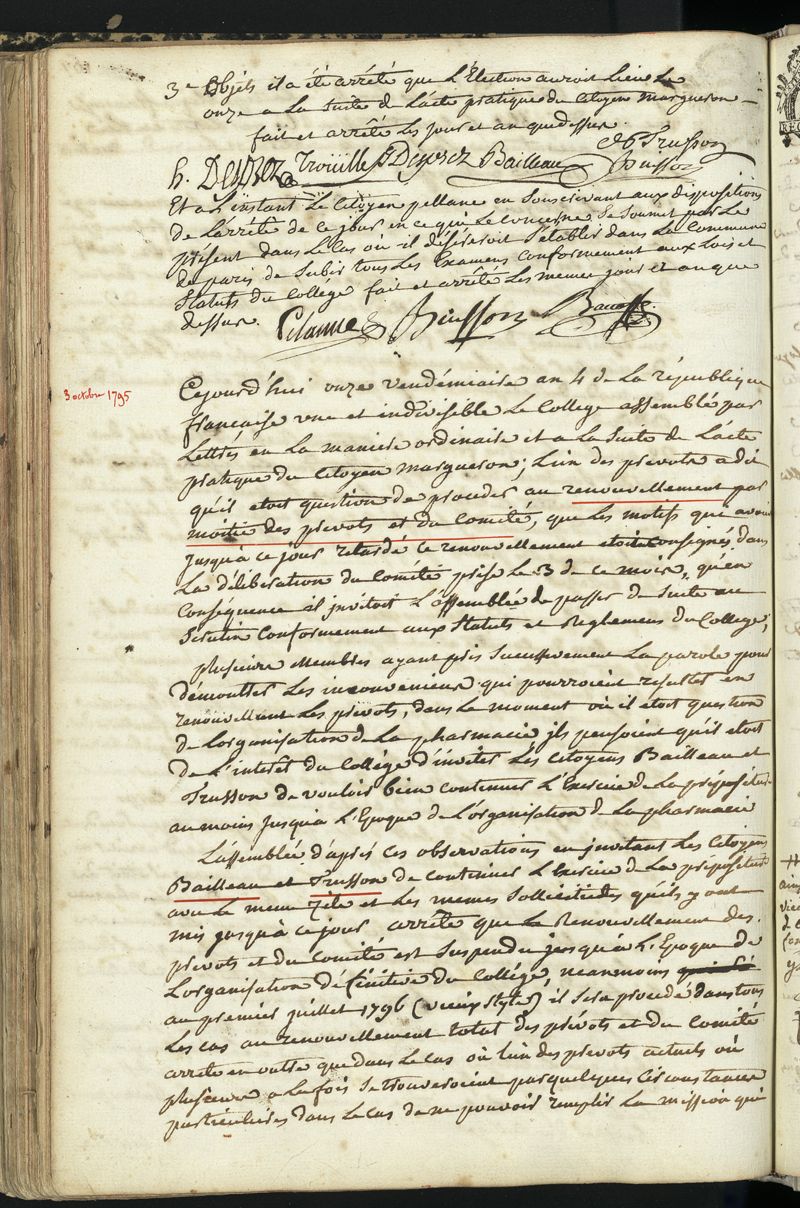 3e Objets il a été arrêté que l'Election auroit Lieu Le
onze a La Suite de L'acte pratique du Citoyen Margueron
fait et arrêté Les jour et an que dessus.
h. Deyeux Trouille Deyeux Bailleau Ch Trusson
Buisson
Et a L'instant Le Citoyen pellane en Souscrivant aux dispositions
de L'arrêté de ce jour en ce qui Le concerne Se Soumet par Le
présent dans Le Cas où il désireroit S'établir dans La Commune
de paris de Subir tous Les Examens Conformement aux Lois et
Statuts du Collége fait et arrêté Les memes jour et an que
dessus.
Buisson
3 octobre 1795
Cejourd'hui onze Vendémiaire an 4 de La république
française une et indivisible Le College assemblé par
Lettres en La maniere ordinaire et a La Suite de L'acte
pratique du Citoyen Margueron; L'un des prevots a dit
qu'il etoit question de proceder au renouvellement par
moitié des prevots et du Comité, que Les motifs qui avoient
jusqu'à ce jour retardé ce renouvellement etoient consignés dans
La déliberation du Comité prise Le 3 de ce mois, qu'en
Conséquence il invitoit L'assemblée de passer de Suite au
Scrutin Conformement aux Statuts et Reglemens du College;
plusieurs Membres ayant pris Successivement La parole pour
démontrer Les inconveniens qui pourroient résulter en
renouvellant Les prevots, dans Le moment où il etoit question
de L'organisation de La pharmacie ils pensoient qu'il etoit
de L'interêt du Collége d'inviter Les Citoyens Bailleau et
Trusson de vouloir bien continuer L'Exercice de La préposit��re
au moins jusqu'à L'Epoque de L'organisation de La pharmacie
L'assemblée d'après ces observations en invitant Les Citoyens
Bailleau et Trusson de continuer L'Exercice de La prépositure
avec Le meme Zèle et Les memes Sollicitudes qu'ils y ont
mis jusqu'à ce jour arrête que Le Renouvellement des
prevots et du Comité est Suspendu jusqu'à L'Epoque de
L'organisation définitive du Collége, neanmoins
au premier juillet 1796 (vieux Style) il Sera procedé dans tous
Les cas au renouvellement total des prévots et du Comité
arrête en outre que dans Le cas où L'un des prevots actuels ou
plusieurs a La fois Se trouveroient par quelques Circonstances
particulieres dans Le cas de ne pouvoir remplir La mission qui